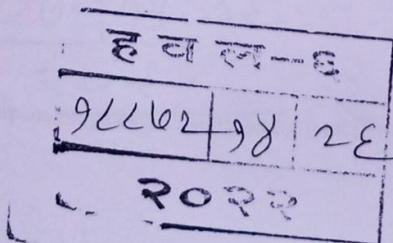 ह व ल - ६
१८८७२ १४ २६
२०२२